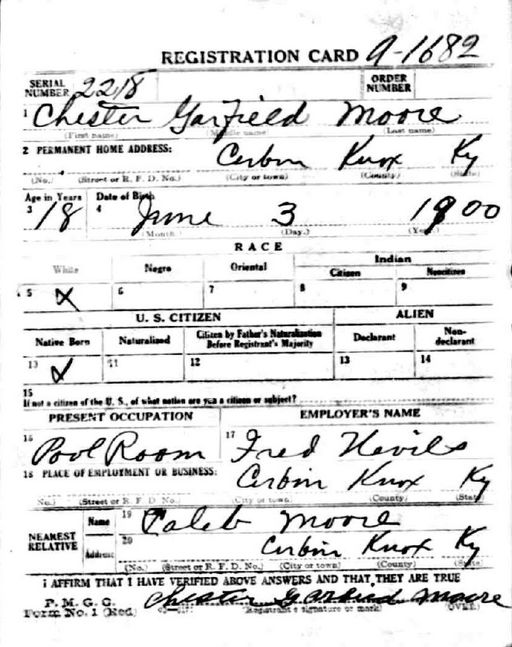 REGISTRATION CARD A-1682
SERIAL NUMBER 2218 ORDER NUMBER
1 Chester Garfield Moore
(First name) (Middle name) (Last name)
2 PERMANENT HOME ADDRESS: Corbin Knox Ky
(No.) (Street or R. F. D. No.) (City or town) (County) (State)
Age in Years Date of Birth
3 18 4 June 3 1900
(Month) (Day.) (Year)
RACE
White Negro Oriental Indian
Citizen Noncitizen
5 X 6 7 8 9
U. S. CITIZEN ALIEN
Native Born Naturalized Citizen by Father's Naturalization Before Registrant's Majority Declarant Non-declarant
10 X 11 12 13 14
15
If not a citizen of the U. S., of what nation are you a citizen or subject?
PRESENT OCCUPATION EMPLOYER'S NAME
16 Pool Room 17 Fred Nevils
18 PLACE OF EMPLOYMENT OR BUSINESS: Corbin Knox Ky
(No.) (Street or R. F. D. No.) (City or town) (County) (State)
NEAREST RELATIVE Name 19 Caleb Moore
Address 20 Corbin Knox Ky
(No.) (Street or R. F. D. No.) (City or town) (County) (State)
I AFFIRM THAT I HAVE VERIFIED ABOVE ANSWERS AND THAT THEY ARE TRUE
P. M. G. O.
Form No. 1 (Red) Chester Garfield Moore
(Registrant's signature or mark) (OVER)